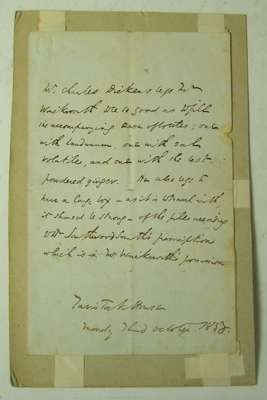 Mr. Charles Dickens begs Mr.
Wackworth will be so good as to fill
the accompanying bottles; one
with laudanum, one with sal
volatile, and one with the best
powdered ginger. He also begs to
have a large box - as it is to travel with
it should be strong - of the pills according
to Dr. Southwood Smith's prescription
which is in Mr. possession
Tavistock House
Monday October